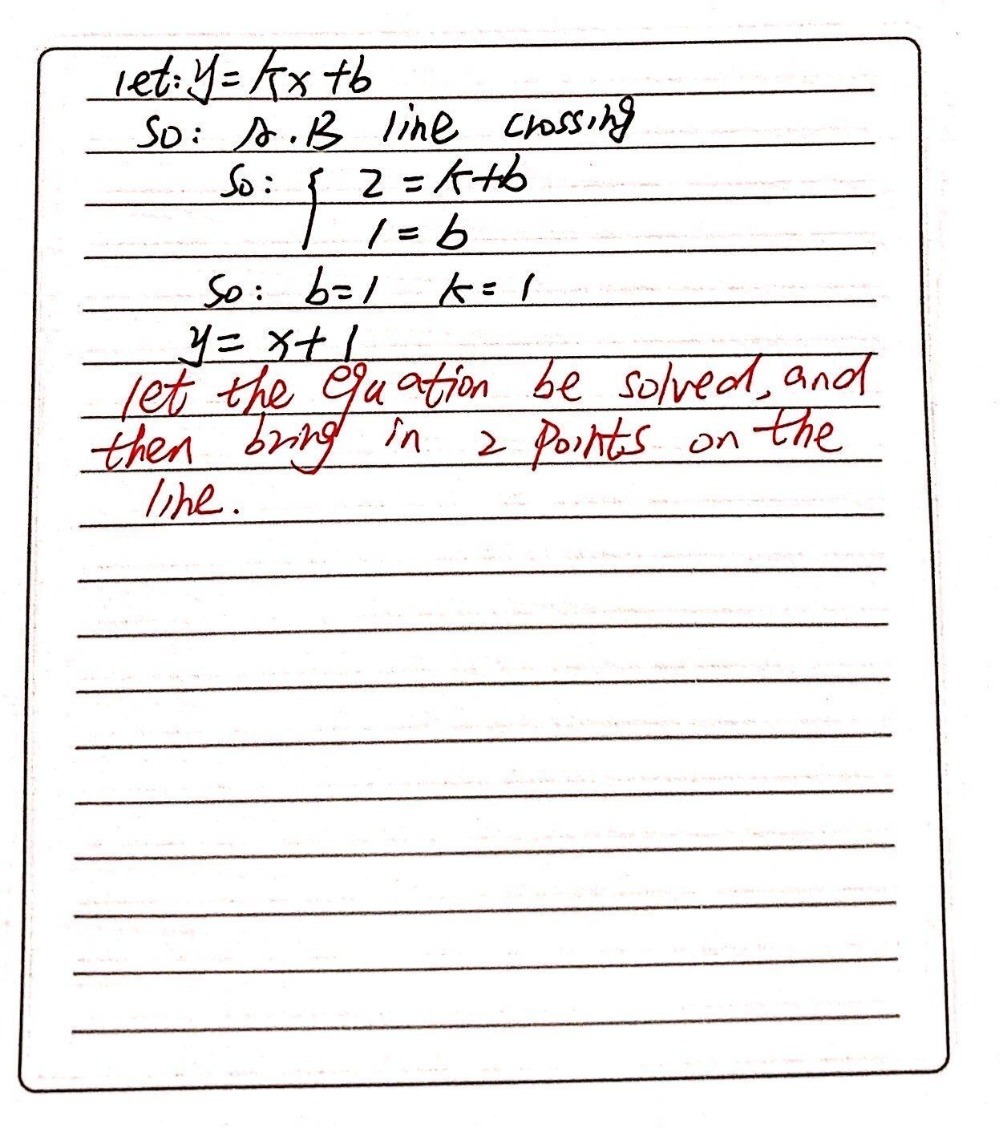 let: y = kx + b
So: A. B line crossing
So: { 2 = k + b
1 = b
So: b = 1 k = 1
y = x + 1
let the equation be solved, and
then bring in 2 points on the
line.